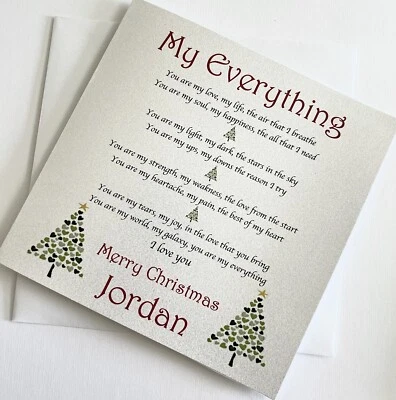 My Everything
You are my love, my life, the air that I breathe
You are my soul, my happiness, the all that I need
You are my light, my dark, the stars in the sky
You are my ups, my downs the reason I try
You are my strength, my weakness, the love from the start
You are my heartache, my pain, the best of my heart
You are my tears, my joy, in the love that you bring
You are my world, my galaxy, you are my everything
I love you
Merry Christmas
Jordan